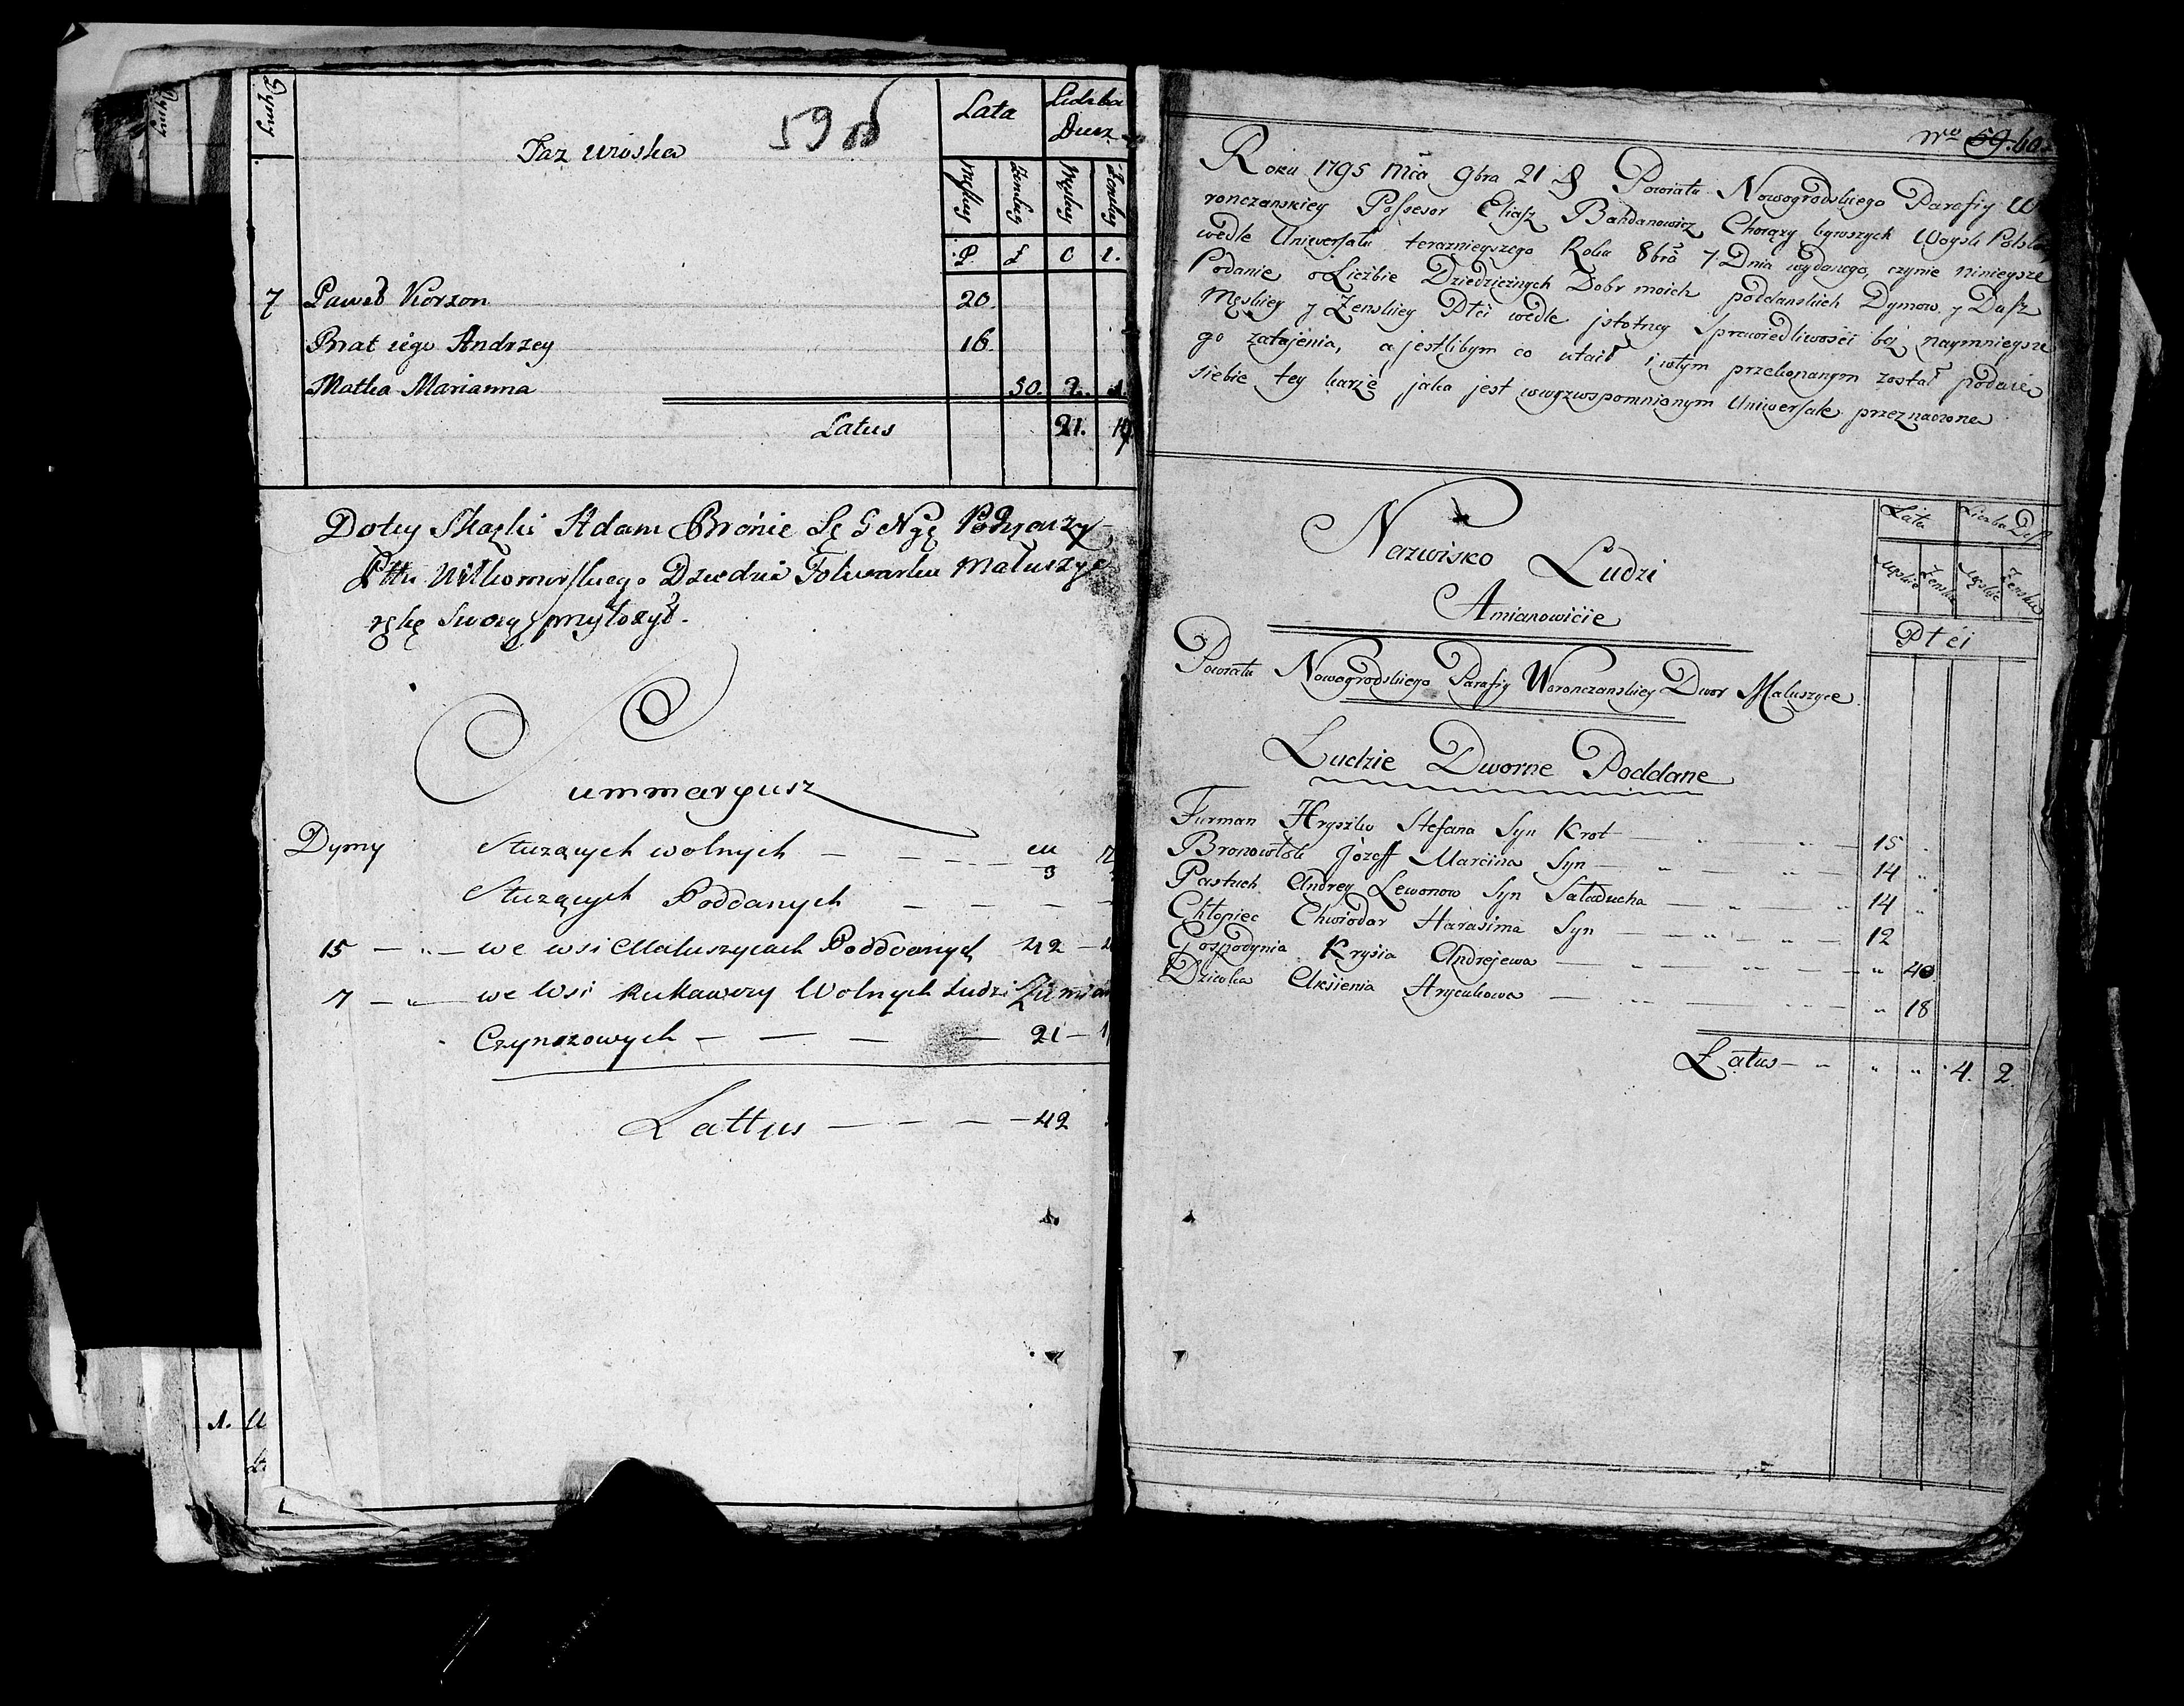 Dymy
Nazwiska
59 об
Lata
Liczba Dusz
Męskey
Żenskey
Męskey
Żenskey
P Ł C I.
7 Paweł Korzon 20.
Brat iego Andrzey 16.
Matka Marianna 50. 2. 1.
Latus 21. 19
Do tey Skazki Adam
Pttu Wiłkomirskiego Dziedzic Folwarku Małuszyc
rękę swoią przyłożył.
Summaryusz
Dymy Służących wolnych — 3
Służących Poddanych —
15 — „ — we wsi Małuszycach Poddanych 42 —
7 — „ — we Wsi Rukawczy Wolnych Ludzi Ziemian
Czynszowych — — — — 21 — 1
Lattus — — — — 42
Nro 59. 60.
Roku 1795 Mca 9bra 21 D Powiatu Nowogrodskiego Parafiy Wo
ronczanskiey Possesor Eliasz Bahdanowicz Chorąży bywszych Woysk Polskich
wedle Uniwersału teraznieyszego Roku 8bra 7. Dnia wydanego, czynie ninieysze
Podanie o Liczbie Dziedzicznych Dobr moich poddanskich Dymow y Dusz
Męskiey y Żenskiey Płci wedle jstotney sprawiedliwości bez naymnieysze
go zatajenia, a jestlibym co utaił i wtym przekonanym został podaie
siebie tey karze jaka jest wwyzwspomnionym Uniwersale przeznaczone
Nazwisko Ludzi
Amianowicie
Lata
Liczba Dus
Męskie
Żenskie
Męskie
Żenskie
Płci
Powiatu Nowogrodskiego Parafiy Woronczanskiey Dwor Małuszyce
Ludzie Dworne Poddane
Furman Hryszko Stefana Syn Krot — „ — „ — 15 „
Bronowłok Jozeff Marcina Syn — „ — „ — 14 „
Pastuch Andrey Lewonow Syn Saładucha — „ — „ 14 „
Chłopiec Chwiodor Harasima Syn — „ — „ — 12
Gospodynia Krysia Andrejewa — „ — „ — „ 40
Dziwka Aksienia Hrycukowa — „ — „ — „ 18
Latus — „ „ „ 4. 2.
1.